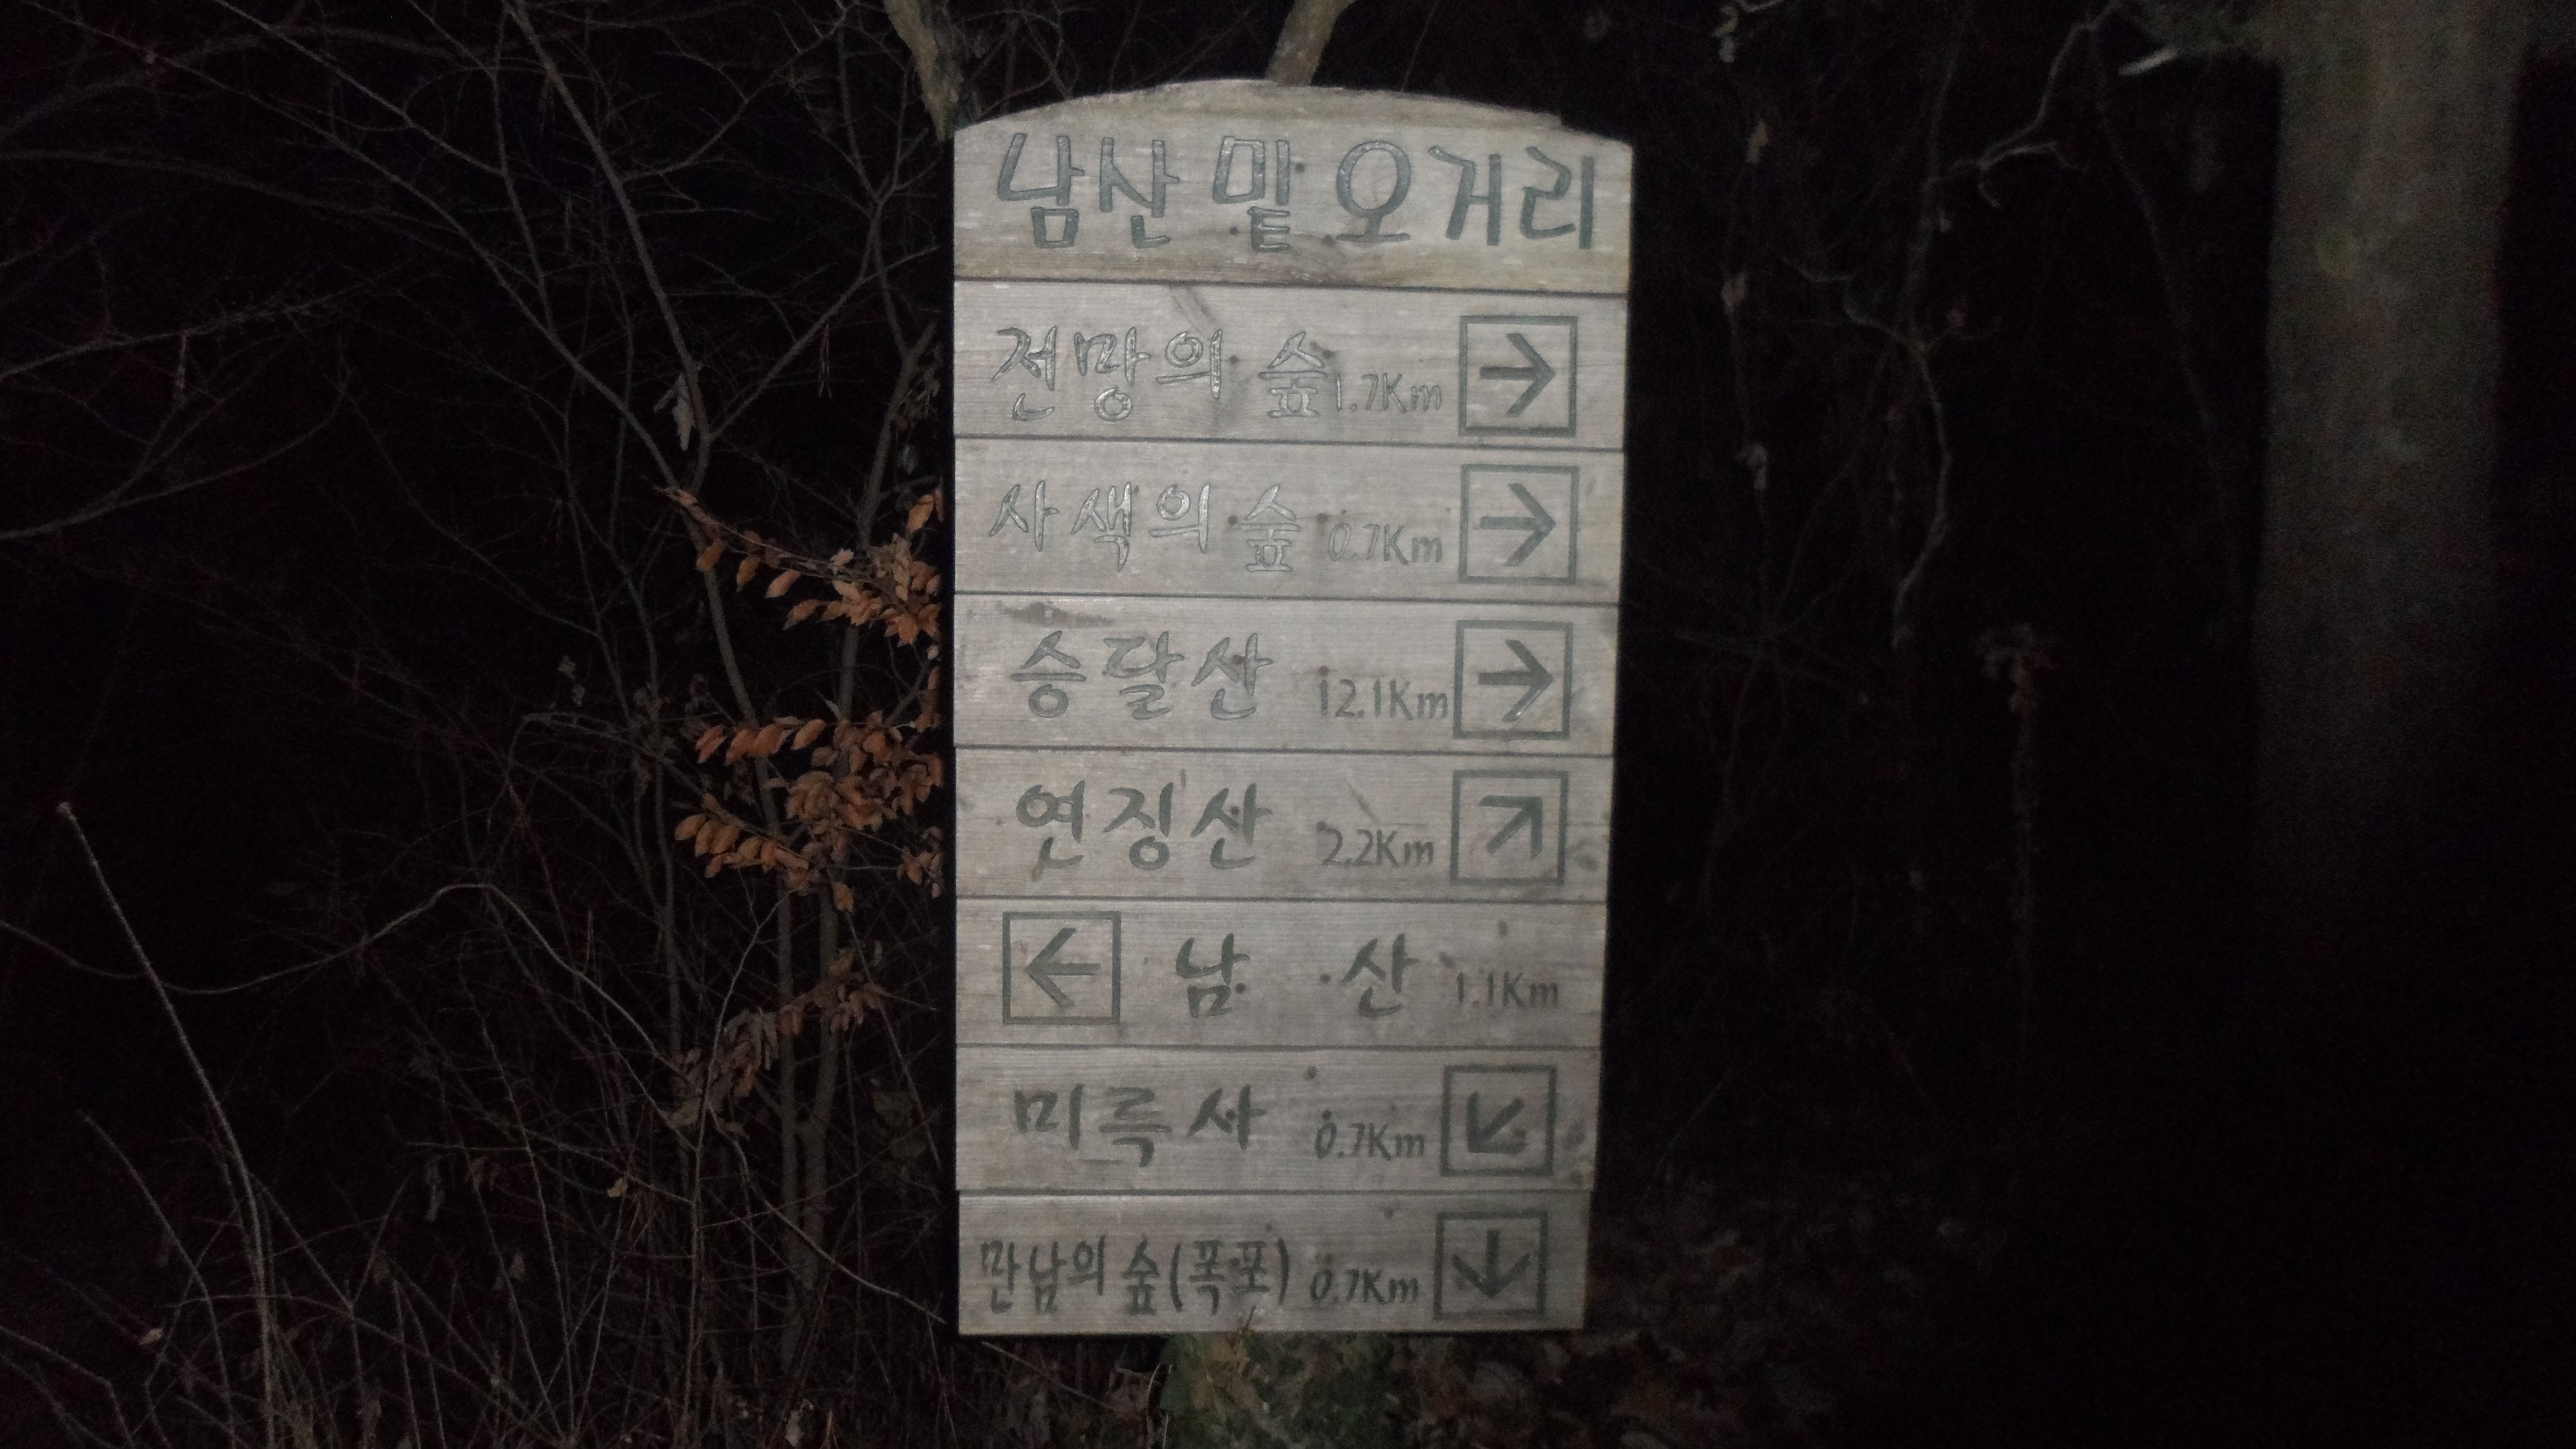 남산 밑 오거리
전망의 숲 1.7Km →
사색의 숲 0.7Km →
승달산 12.1Km →
연징산 2.2Km ↗
← 남 산 1.1Km
미륵사 0.7Km ↙
만남의 숲(폭포) 0.7Km ↓